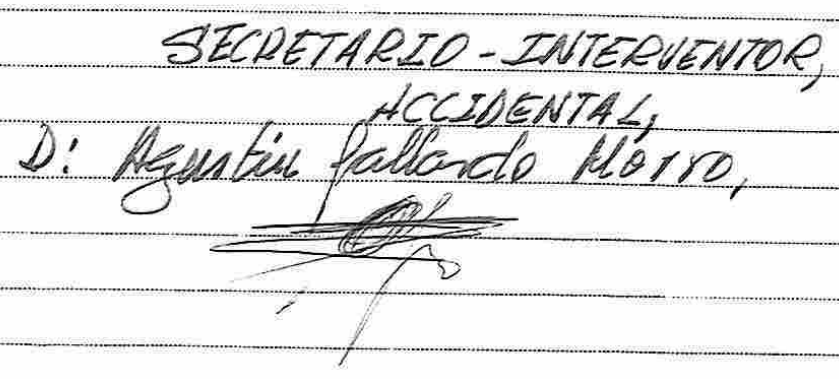 SECRETARIO - INTERVENTOR,
ACCIDENTAL,
D: Agustín Gallardo Morro,